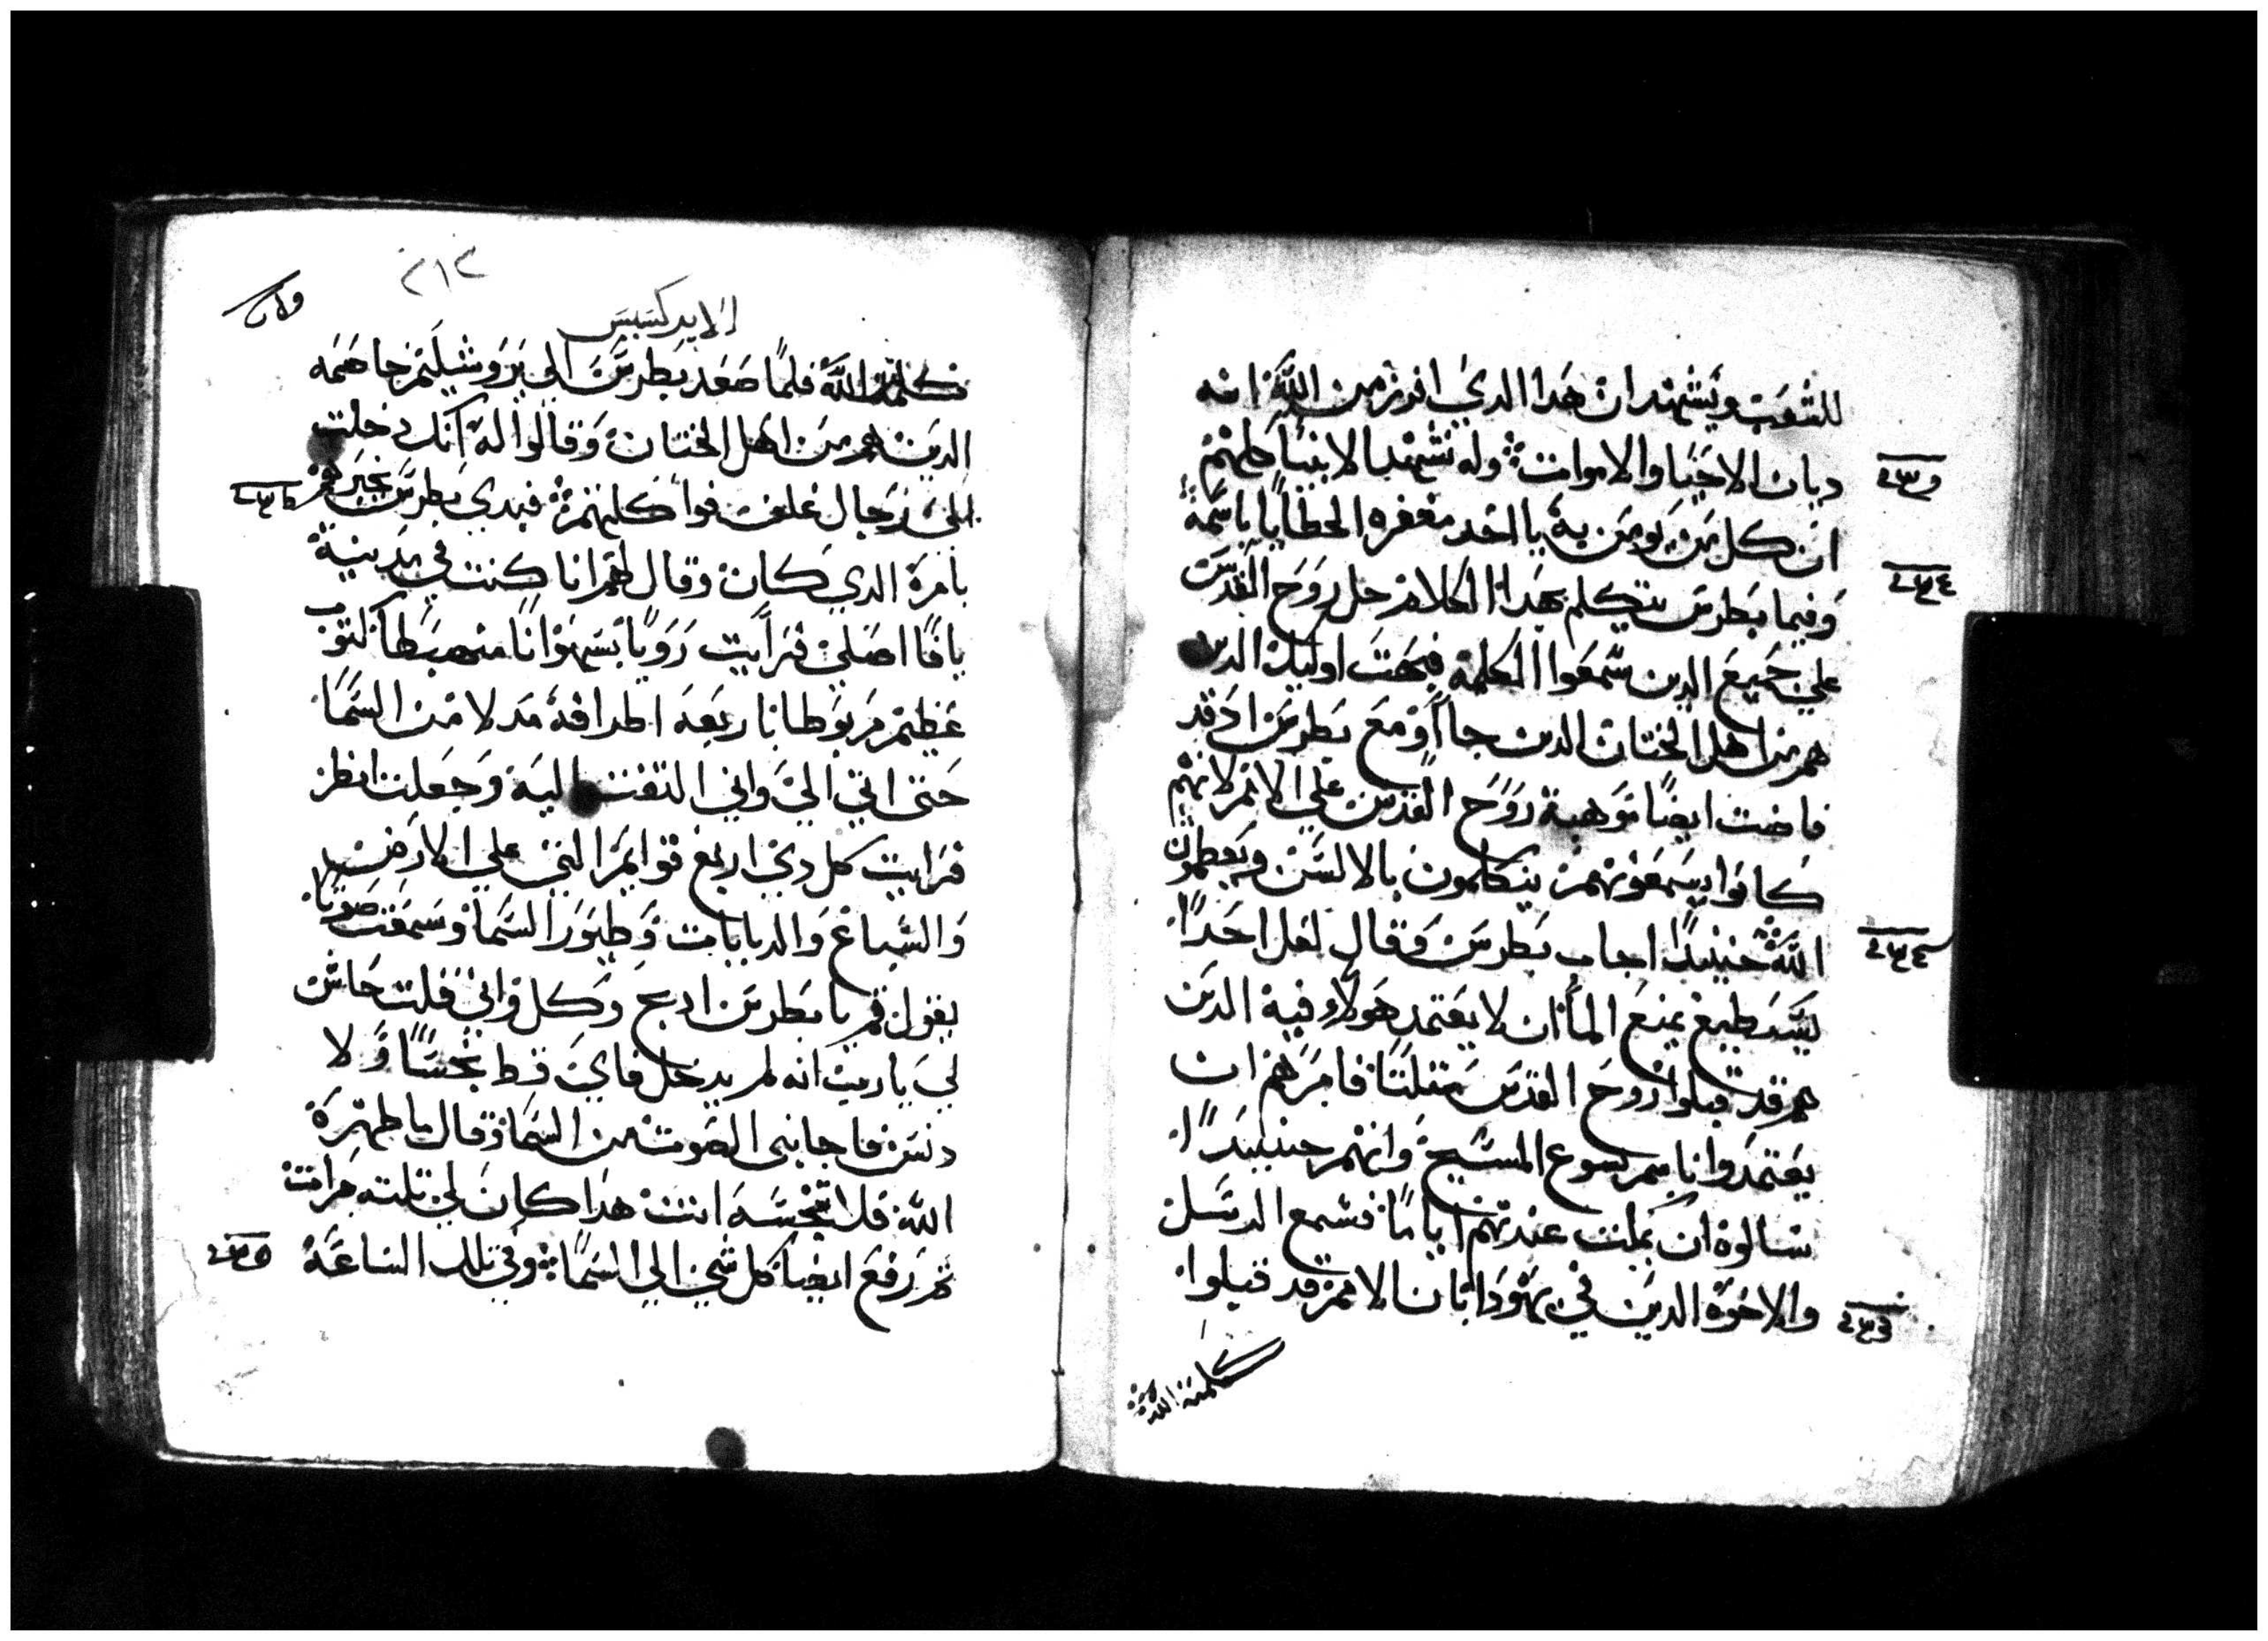 للشعب ويشهد ان هدا الدي افرز من الله انه
ديان الاحيا والاموات وله تشهد الانبيا كلهم
ان كل من يومن به ياخد مغفره الخطايا باسمه
وفيما بطرس يتكلم بهدا الكلام حل روح القدس
علي جميع الدين سمعوا الكلمه فبهت اوليك الدين
هم من اهل الختان الدين جااوا مع بطرس اد قد
فاضت ايضا موهبة روح القدس علي الامم لانهم
كانوا يسمعونهم يتكلمون بالالسن ويعظمون
الله حينيدا اجاب بطرس وقال لعل احدا
يستطيع يمنع الما ان لا يعتمد هولاء فيه الدين
هم قد قبلوا روح القدس متلنا فامرهم ان
يعتمدوا باسم يسوع المسيح وانهم حينيدا
سالوه ان يمكت عندهم اياما فسمع الرسل
والاخوه الدين في يهودا بان الامم قد قبلوا
كلمة الله
٢١٢
الابركسيس
كلمة الله فلما صعد بطرس الي يروشليم خاصمه
الدين هم من اهل الختان وقالوا له انك دخلت
الي رجال غلف فواكلتهم فبدي بطرس يخبرهم
بامره الدي كان وقال لهم انا كنت في مدينة
يافا اصلي فرايت رويا بسهوانا منهبطا كتوب
عظيم مربوطا باربعه اطرافه مدلا من السما
حتي اتي الي واني التفت اليه وجعلت انظر
فرايت كل دي اربع قوايم التي علي الارض
والسباع والدبابات وطيور السما وسمعت صوتا
يقول قم يا بطرس ادبح وكل واني قلت حاش
لي يارب انه لم يدخل فاي قط نجسا ولا
دنس فاجابني الصوت من السما وقال ما طهره
الله فلا تنجسه انت هدا كان لي تلته مرات
ثم رفع ايضا كل شي الي السما وفي تلك الساعة